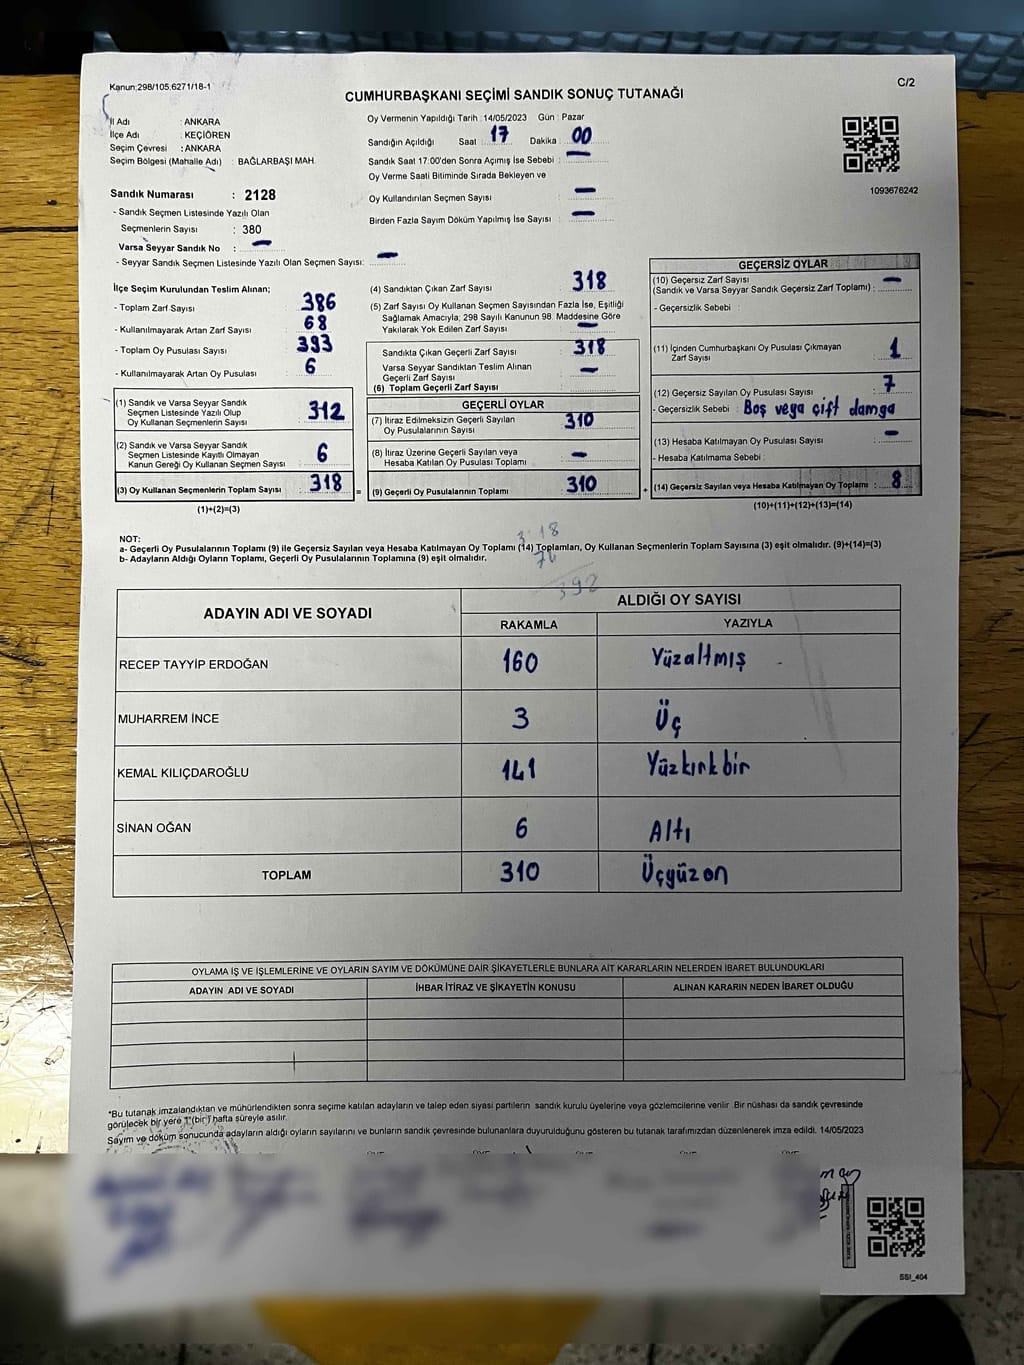 Kanun:298/105.6271/18-1
C/2
CUMHURBAŞKANI SEÇİMİ SANDIK SONUÇ TUTANAĞI
İl Adı : ANKARA
İlçe Adı : KEÇİÖREN
Seçim Çevresi : ANKARA
Seçim Bölgesi (Mahalle Adı) : BAĞLARBAŞI MAH.
Sandık Numarası : 2128
- Sandık Seçmen Listesinde Yazılı Olan
Seçmenlerin Sayısı : 380
Varsa Seyyar Sandık No : —
- Seyyar Sandık Seçmen Listesinde Yazılı Olan Seçmen Sayısı: —
Oy Vermenin Yapıldığı Tarih : 14/05/2023 Gün : Pazar
Sandığın Açıldığı Saat 17 Dakika 00
Sandık Saat 17:00'den Sonra Açımış İse Sebebi : —
Oy Verme Saati Bitiminde Sırada Bekleyen ve
Oy Kullandırılan Seçmen Sayısı : —
Birden Fazla Sayım Döküm Yapılmış İse Sayısı : —
1093676242
İlçe Seçim Kurulundan Teslim Alınan;
- Toplam Zarf Sayısı : 386
- Kullanılmayarak Artan Zarf Sayısı : 68
- Toplam Oy Pusulası Sayısı : 393
- Kullanılmayarak Artan Oy Pusulası : 6
(1) Sandık ve Varsa Seyyar Sandık
Seçmen Listesinde Yazılı Olup
Oy Kullanan Seçmenlerin Sayısı : 312
(2) Sandık ve Varsa Seyyar Sandık
Seçmen Listesinde Kayıtlı Olmayan
Kanun Gereği Oy Kullanan Seçmen Sayısı : 6
(3) Oy Kullanan Seçmenlerin Toplam Sayısı : 318
(1)+(2)=(3)
(4) Sandıktan Çıkan Zarf Sayısı : 318
(5) Zarf Sayısı Oy Kullanan Seçmen Sayısından Fazla İse, Eşitliği
Sağlamak Amacıyla; 298 Sayılı Kanunun 98. Maddesine Göre
Yakılarak Yok Edilen Zarf Sayısı : —
Sandıkta Çıkan Geçerli Zarf Sayısı : 318
Varsa Seyyar Sandıktan Teslim Alınan
Geçerli Zarf Sayısı : —
(6) Toplam Geçerli Zarf Sayısı :
GEÇERLİ OYLAR
(7) İtiraz Edilmeksizin Geçerli Sayılan
Oy Pusulalarının Sayısı : 310
(8) İtiraz Üzerine Geçerli Sayılan veya
Hesaba Katılan Oy Pusulası Toplamı : —
= (9) Geçerli Oy Pusulalarının Toplamı : 310
GEÇERSİZ OYLAR
(10) Geçersiz Zarf Sayısı
(Sandık ve Varsa Seyyar Sandık Geçersiz Zarf Toplamı) : —
- Geçersizlik Sebebi :
(11) İçinden Cumhurbaşkanı Oy Pusulası Çıkmayan
Zarf Sayısı : 1
(12) Geçersiz Sayılan Oy Pusulası Sayısı : 7
- Geçersizlik Sebebi : Boş veya çift damga
(13) Hesaba Katılmayan Oy Pusulası Sayısı : —
- Hesaba Katılmama Sebebi :
+ (14) Geçersiz Sayılan veya Hesaba Katılmayan Oy Toplamı : 8
(10)+(11)+(12)+(13)=(14)
NOT:
a- Geçerli Oy Pusulalarının Toplamı (9) ile Geçersiz Sayılan veya Hesaba Katılmayan Oy Toplamı (14) Toplamları, Oy Kullanan Seçmenlerin Toplam Sayısına (3) eşit olmalıdır. (9)+(14)=(3)
b- Adayların Aldığı Oyların Toplamı, Geçerli Oy Pusulalarının Toplamına (9) eşit olmalıdır.
318
392
ADAYIN ADI VE SOYADI
ALDIĞI OY SAYISI
RAKAMLA YAZIYLA
RECEP TAYYİP ERDOĞAN 160 Yüzaltmış
MUHARREM İNCE 3 Üç
KEMAL KILIÇDAROĞLU 141 Yüzkırkbir
SİNAN OĞAN 6 Altı
TOPLAM 310 Üçyüzon
OYLAMA İŞ VE İŞLEMLERİNE VE OYLARIN SAYIM VE DÖKÜMÜNE DAİR ŞİKAYETLERLE BUNLARA AİT KARARLARIN NELERDEN İBARET BULUNDUKLARI
ADAYIN ADI VE SOYADI İHBAR İTİRAZ VE ŞİKAYETİN KONUSU ALINAN KARARIN NEDEN İBARET OLDUĞU
*Bu tutanak imzalandıktan ve mühürlendikten sonra seçime katılan adayların ve talep eden siyasi partilerin sandık kurulu üyelerine veya gözlemcilerine verilir. Bir nüshası da sandık çevresinde
görülecek bir yere 1 (bir) hafta süreyle asılır.
Sayım ve döküm sonucunda adayların aldığı oyların sayılarını ve bunların sandık çevresinde bulunanlara duyurulduğunu gösteren bu tutanak tarafımızdan düzenlenerek imza edildi. 14/05/2023
SSI_404